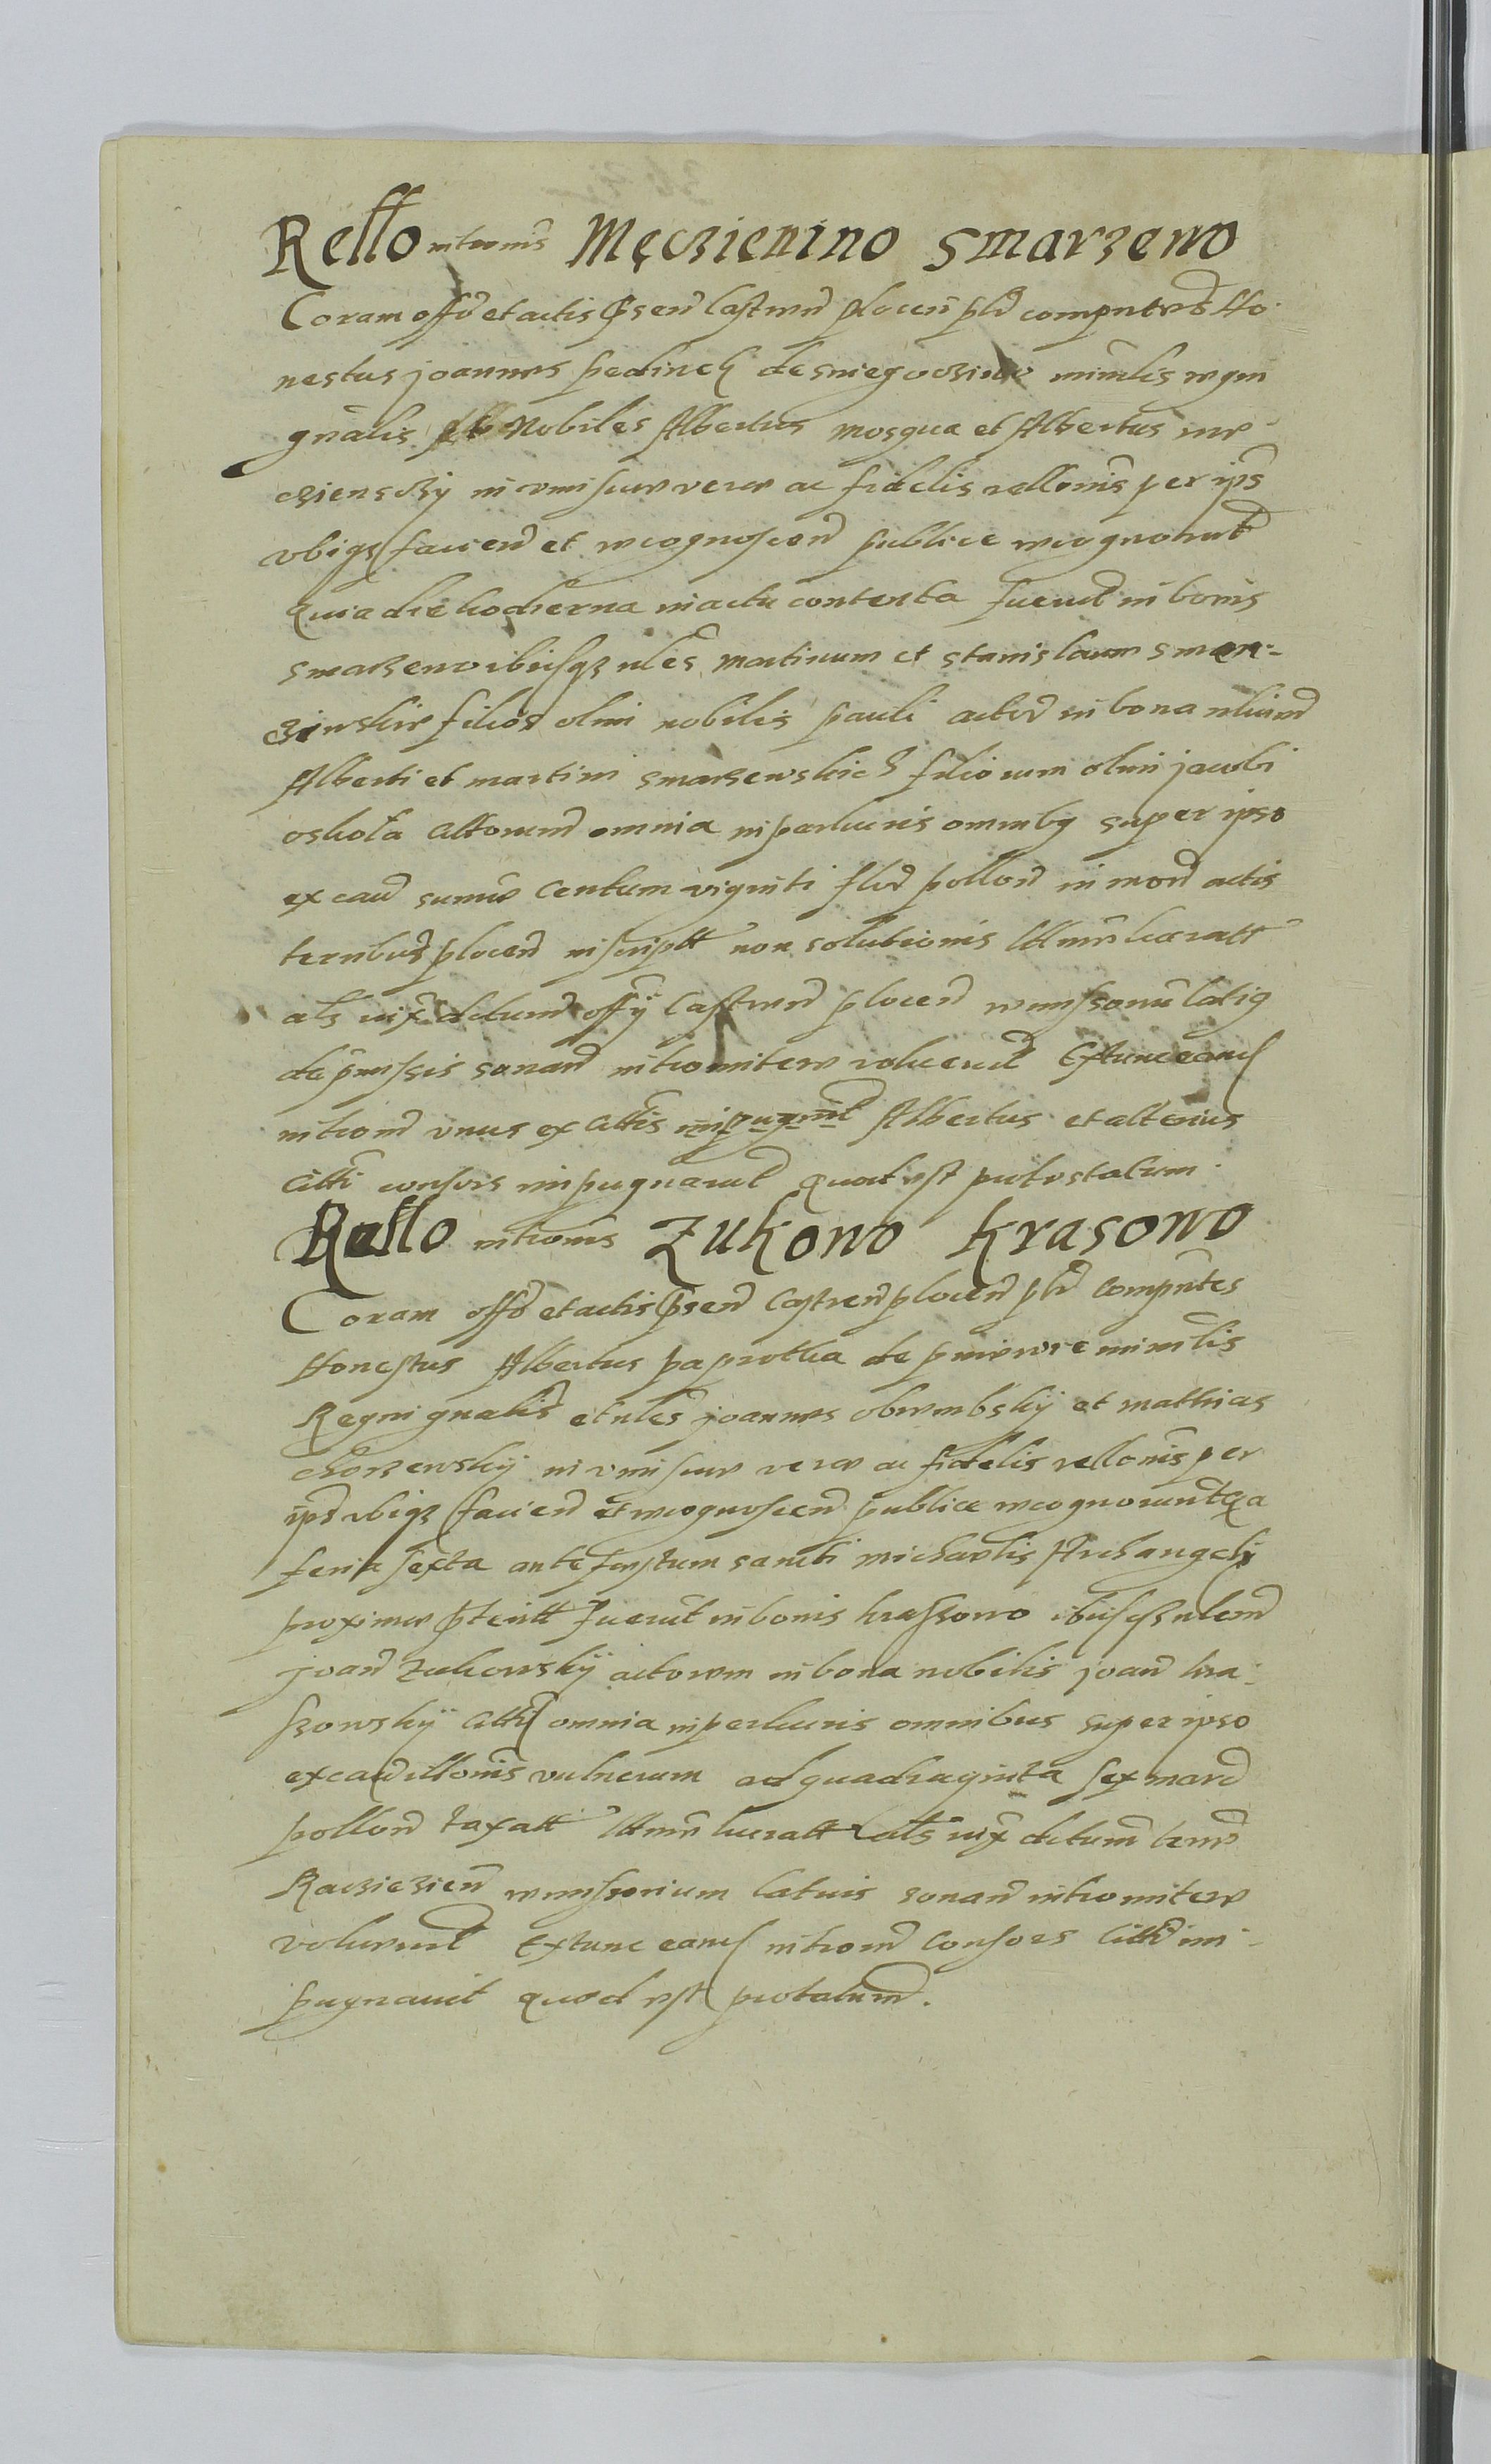 Rello intromis Męczienino Smarzewo
Coram offo et actis pseñ Castreñ Ploceñ pltr compntes Ho-
nestus joannes pedinek de sniegoczino minrlis regni
gnalis Nobiles Albertus mosqua et Albertus me-
czienskij in vim suae verae ac fidelis rellonis per ips
vbiqz facieñ et recognosceñ publice recognoverut
Quia die hodierna in actu contenta fuerut in bonis
smarzewo ibiusqz nles martinum et stanislaum smar-
zewskie filios olim nobilis pauli actor in bona nlium
Alberti et martini smarzewskich filiorum olim jacobi
oskola cittorum omnia in perlucris omnibq super ipso
ex cau summe Centum viginti flor pollon in mod actis
terribus plocen inscript non solutionis lttme lucratt
als iux dectum offy Castren plocen remissoriu latiq
de pmissis sonan intromitere voluerut Extunc eand
introm vnus ex cittis Albertus et alterius
citti consors impugnarut Quod est protestatum.
Rello intromis Zukowo Krasowo
Coram offo et actis pseñ Castreñ ploceñ pltr compntes
Honestus Albertus paprotka de minrlis
Regni gnalis et nles joannes obrembskij et mathias
chorzewskij in vim suae verae ac fidelis rellonis per
ips vbiqz facieñ et recognosceñ publice recognorunt qa
feria sexta ante festum sancti michaelis Archangeli
proxime pteritt fuerut in bonis krassowo ibiusqz nlem
joan zukowskij actorem in bona nobilis joan kra-
szowskij citti omnia in perlucris omnibus super ipso
ex cau illonis vulnerum ad quadraginta sex marc
pollon taxatt lttme lucratt als iux dctum terre
Racziązien remissorium latius sonan intromitere
voluerut Extunc eand introm consors citti im-
pugnavit quod est protatum.